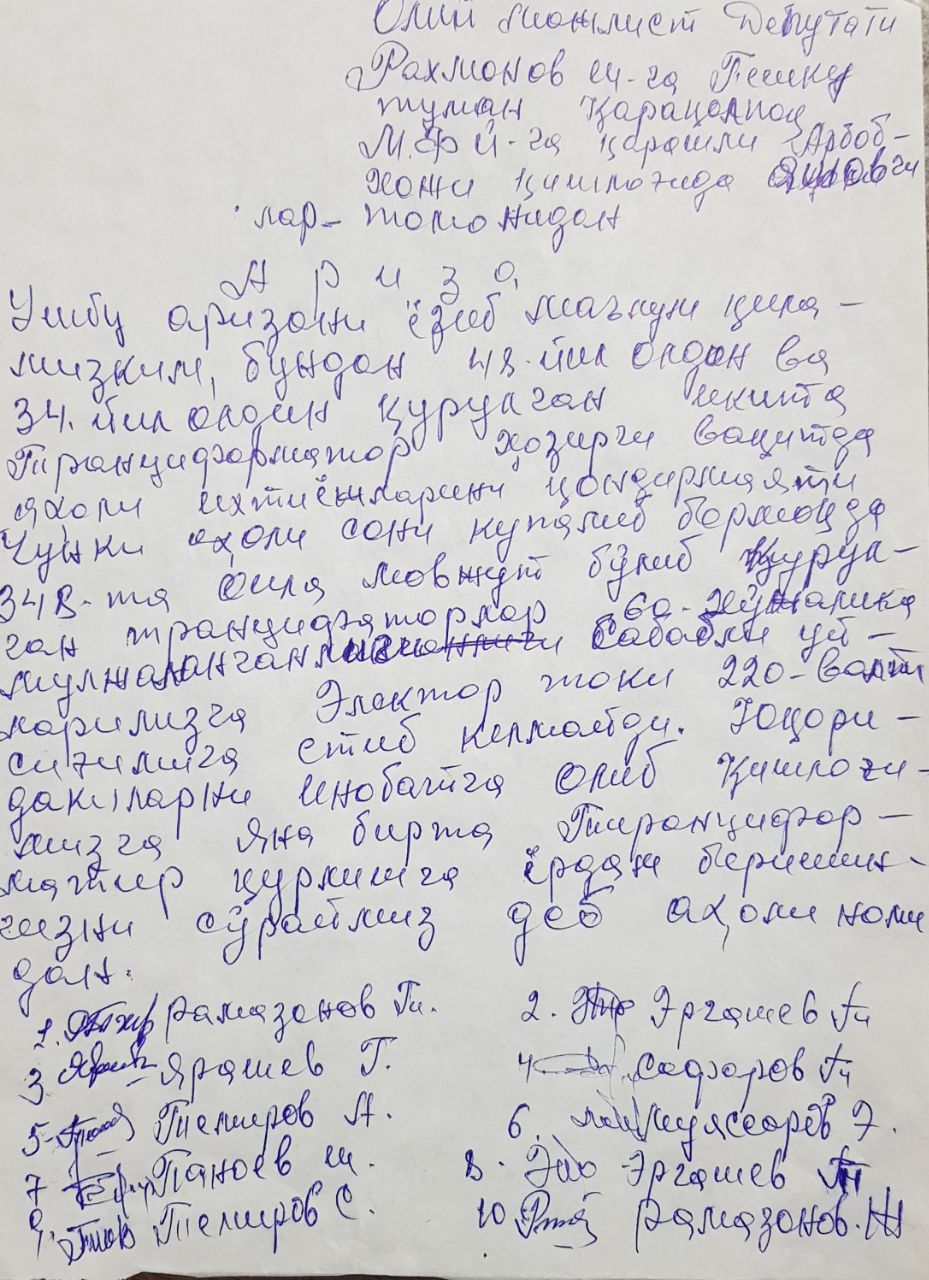 Олий мажлист Депутати
Рахмонов Ш-га Пешку
туман Қарақалпоқ
М.Ф.Й-га қарашли Арбоб-
хожи қишлоғида яшовчи
лар- томонидан
А р и з а
Ушбу аризани ёзиб маълум қила-
мизким, бундан 48-йил олдин ва
34. йил олдин қурулган иккита
Транцифарматор ҳозирги вақитда
аҳоли ихтиёжларини қондирмаяпти
Чунки аҳоли сони купайиб бормоқда
348-та оила мовжут бўлиб қурул-
ган транцифаторлар 60-хўжалика
мулжаланган сабабли уй-
ларимизга Электор токи 220-волт
сиғимига етиб келмаяпди. Юқори-
дакиларни инобатга олиб қишлоғи-
мизга яна бирта Транцифар-
матир қурмишга ёрдам беришин-
гизни сўраймиз деб аҳоли номи
дан.
1. Рамазонов Т. 2. Эргашев Т
3. Ярашев Г. 4 Сафоров Т
5- Темиров А. 6. Муяссаров Э.
7 Паноев Ш. 8. Эргашев
9. Темиров С. 10 Рамазонов. Ж